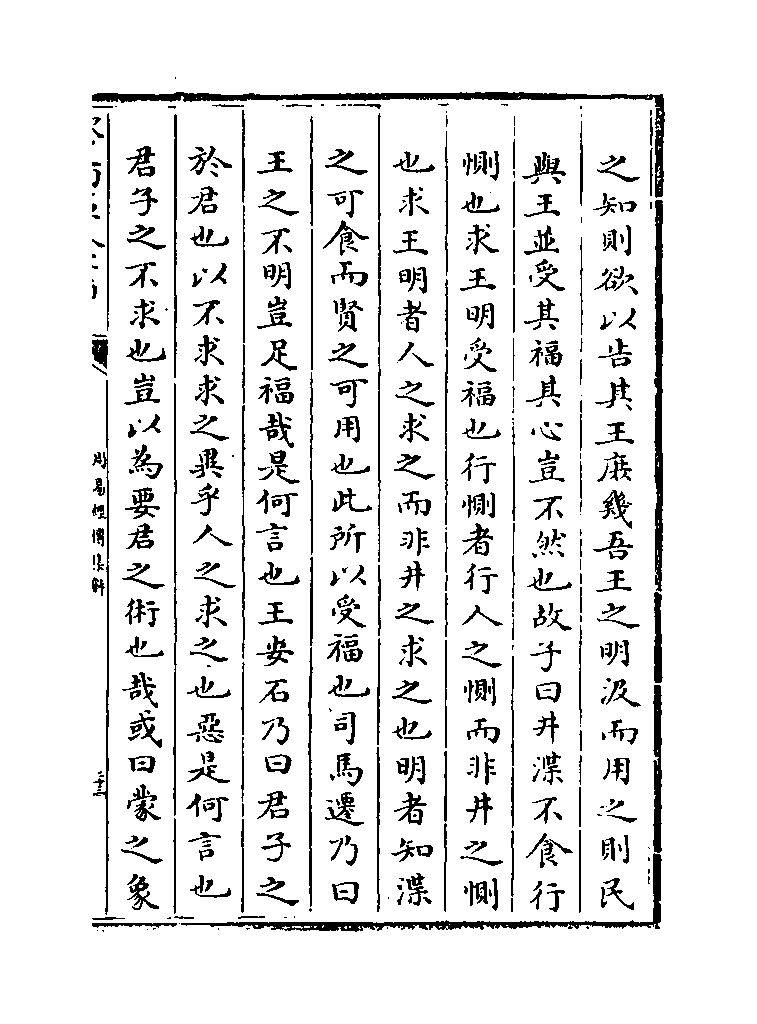 之知則欲以告其王庶幾吾王之明汲而用之則民
與王並受其福其心豈不然也故子曰井渫不食行
惻也求王明受福也行惻者行人之惻而非井之惻
也求王明者人之求之而非井之求之也明者知渫
之可食而賢之可用也此所以受福也司馬遷乃曰
王之不明豈足福哉是何言也王安石乃曰君子之
於君也以不求求之異乎人之求之也惡是何言也
君子之不求也豈以為要君之術也哉或曰蒙之象
周易經傳集解
二十三